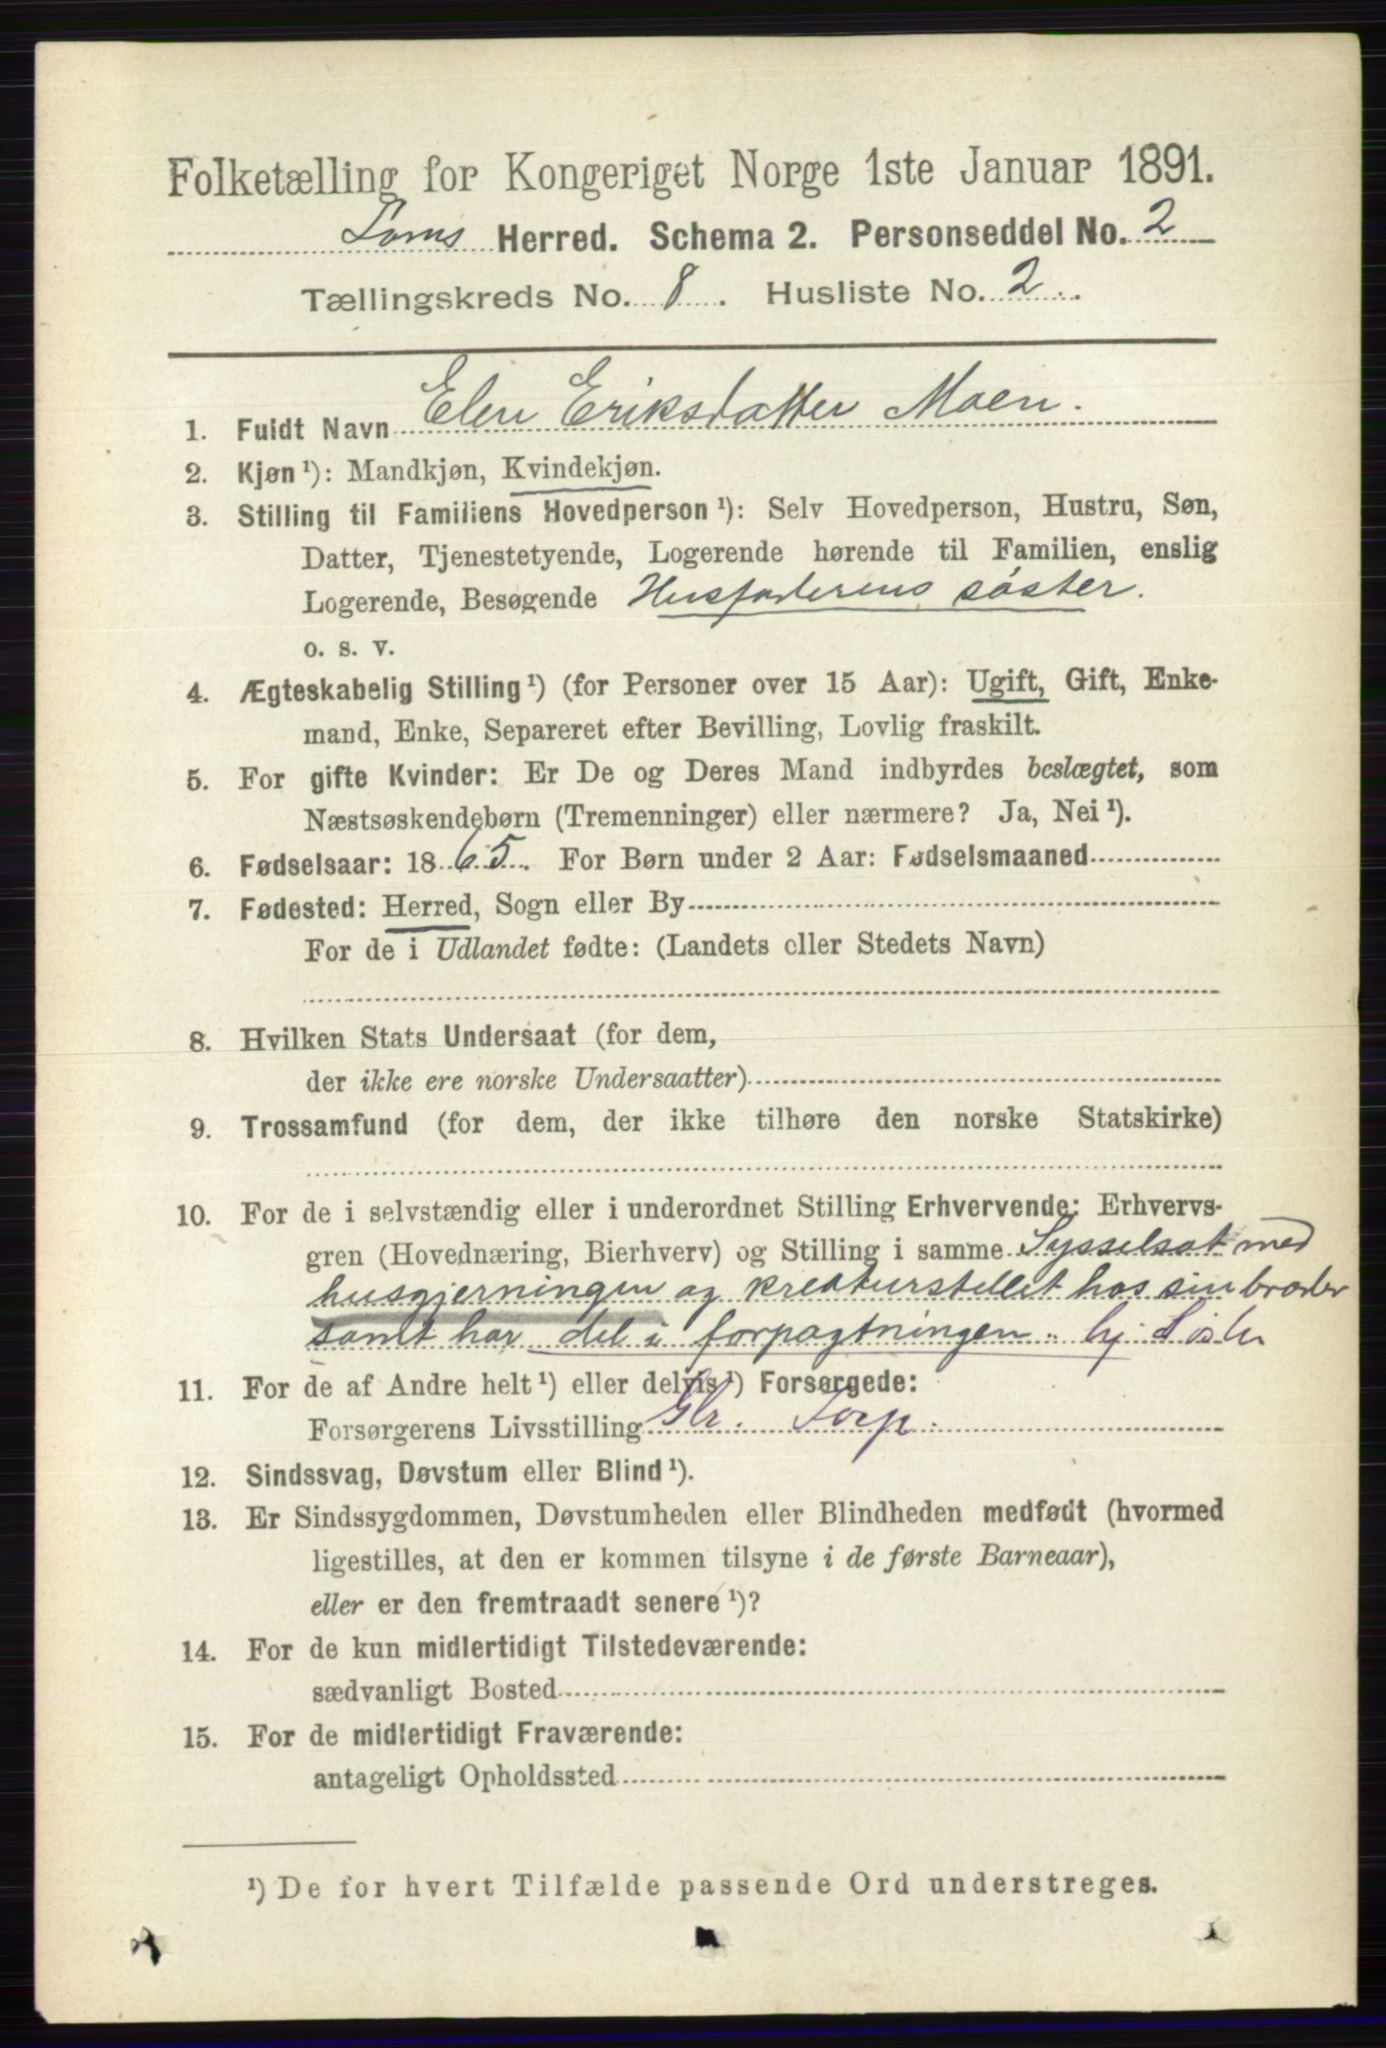 Folketælling for Kongeriget Norge 1ste Januar 1891.
Loms Herred. Schema 2. Personseddel No. 2
Tællingskreds No. 8. Husliste No. 2.
1. Fuldt Navn Elen Eriksdatter Moen.
2. Kjøn ¹): Mandkjøn, Kvindekjøn.
3. Stilling til Familiens Hovedperson ¹): Selv Hovedperson, Hustru, Søn,
Datter, Tjenestetyende, Logerende hørende til Familien, enslig
Logerende, Besøgende Husfaderens søster.
o. s. v.
4. Ægteskabelig Stilling ¹) (for Personer over 15 Aar): Ugift, Gift, Enke-
mand, Enke, Separeret efter Bevilling, Lovlig fraskilt.
5. For gifte Kvinder: Er De og Deres Mand indbyrdes beslægtet, som
Næstsøskendebørn (Tremenninger) eller nærmere? Ja, Nei ¹).
6. Fødselsaar: 1865. For Børn under 2 Aar: Fødselsmaaned
7. Fødested: Herred, Sogn eller By
For de i Udlandet fødte: (Landets eller Stedets Navn)
8. Hvilken Stats Undersaat (for dem,
der ikke ere norske Undersaatter)
9. Trossamfund (for dem, der ikke tilhøre den norske Statskirke)
10. For de i selvstændig eller i underordnet Stilling Erhvervende: Erhvervs-
gren (Hovednæring, Bierhverv) og Stilling i samme Sysselsat med
husgjerningen og kreaturstellet hos sin broder
samt har del i forpagtningen. hj. Søster
11. For de af Andre helt ¹) eller delvis ¹) Forsørgede:
Forsørgerens Livsstilling Gbr. Forp.
12. Sindssvag, Døvstum eller Blind ¹).
13. Er Sindssygdommen, Døvstumheden eller Blindheden medfødt (hvormed
ligestilles, at den er kommen tilsyne i de første Barneaar),
eller er den fremtraadt senere ¹)?
14. For de kun midlertidigt Tilstedeværende:
sædvanligt Bosted
15. For de midlertidigt Fraværende:
antageligt Opholdssted
¹) De for hvert Tilfælde passende Ord understreges.